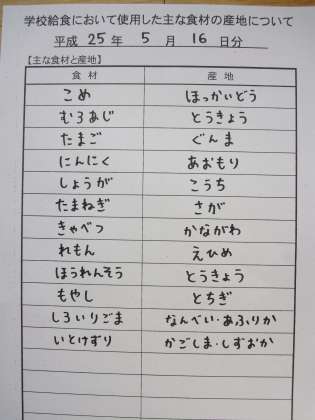 学校給食において使用した主な食材の産地について
平成 25 年 5 月 16 日分
【主な食材と産地】
食材 産地
こめ ほっかいどう
むろあじ とうきょう
たまご ぐんま
にんにく あおもり
しょうが こうち
たまねぎ さが
きゃべつ かながわ
れもん えひめ
ほうれんそう とうきょう
もやし とちぎ
しろいりごま なんべい・あふりか
いとけずり かごしま・しずおか